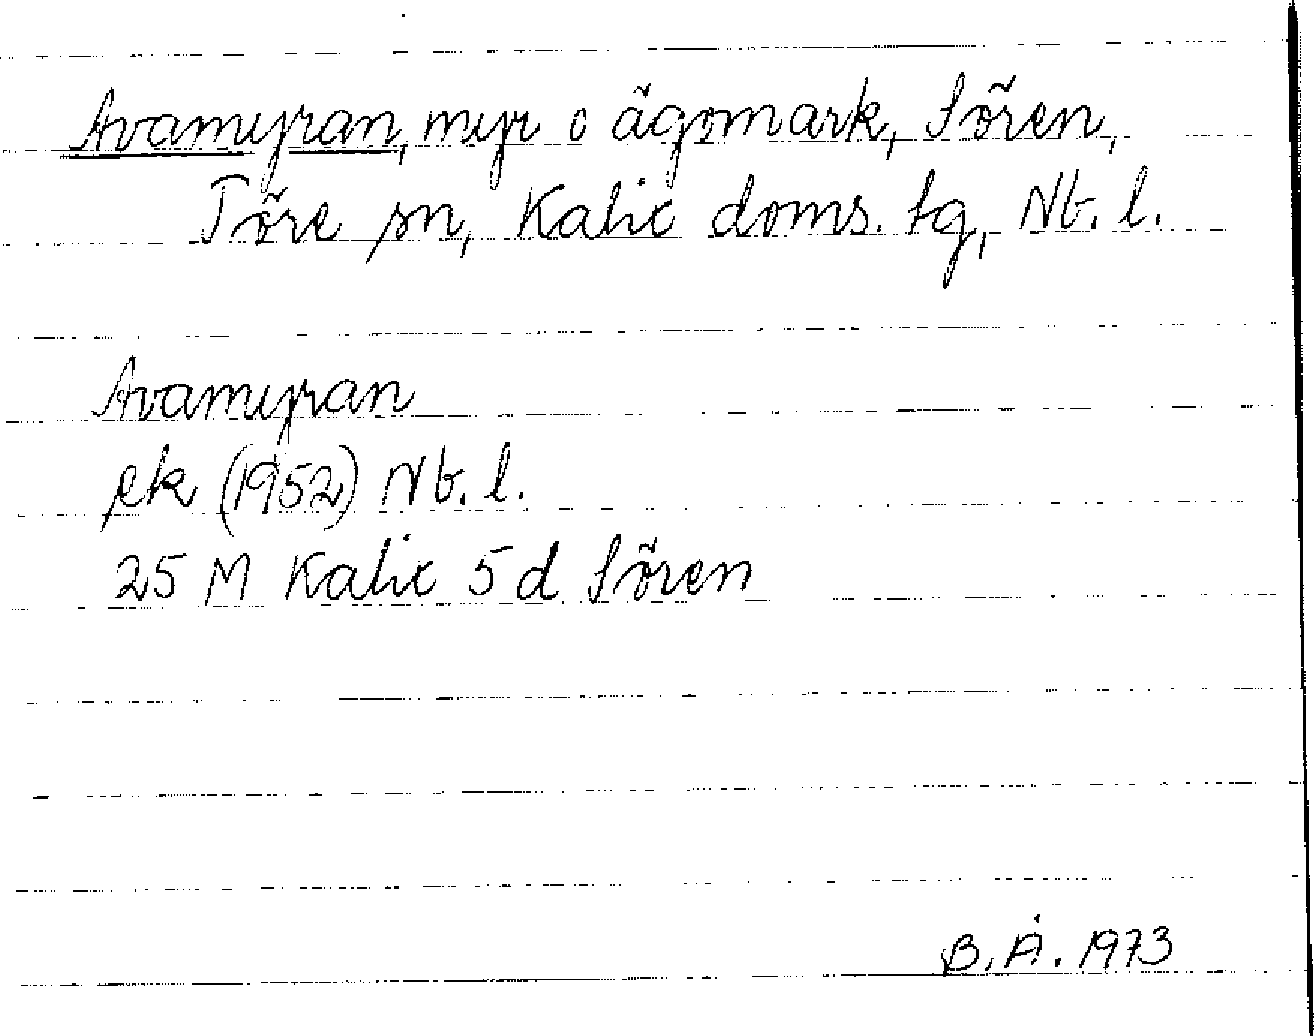 Avamyran, myr o ägomark, Sören,
Töre sn, Kalix doms. tg, Nb. l.
Avamyran
ek (1952) Nb. l.
25 M Kalix 5 d Sören
B. Å. 1973